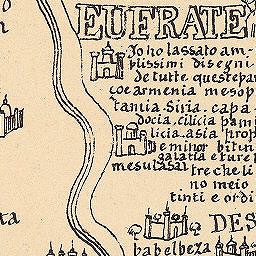 EUFRATE
Io ho lassato am-
plissimi disegni
de tutte queste par
coe armenia mesop
tania. Siria. capa.
docia. cilicia. pam
licia. asia. prop
e minor bitin
galatia e ture
mesulasal
tre che li
no meio
tinti e ordi
DES
babelbeza